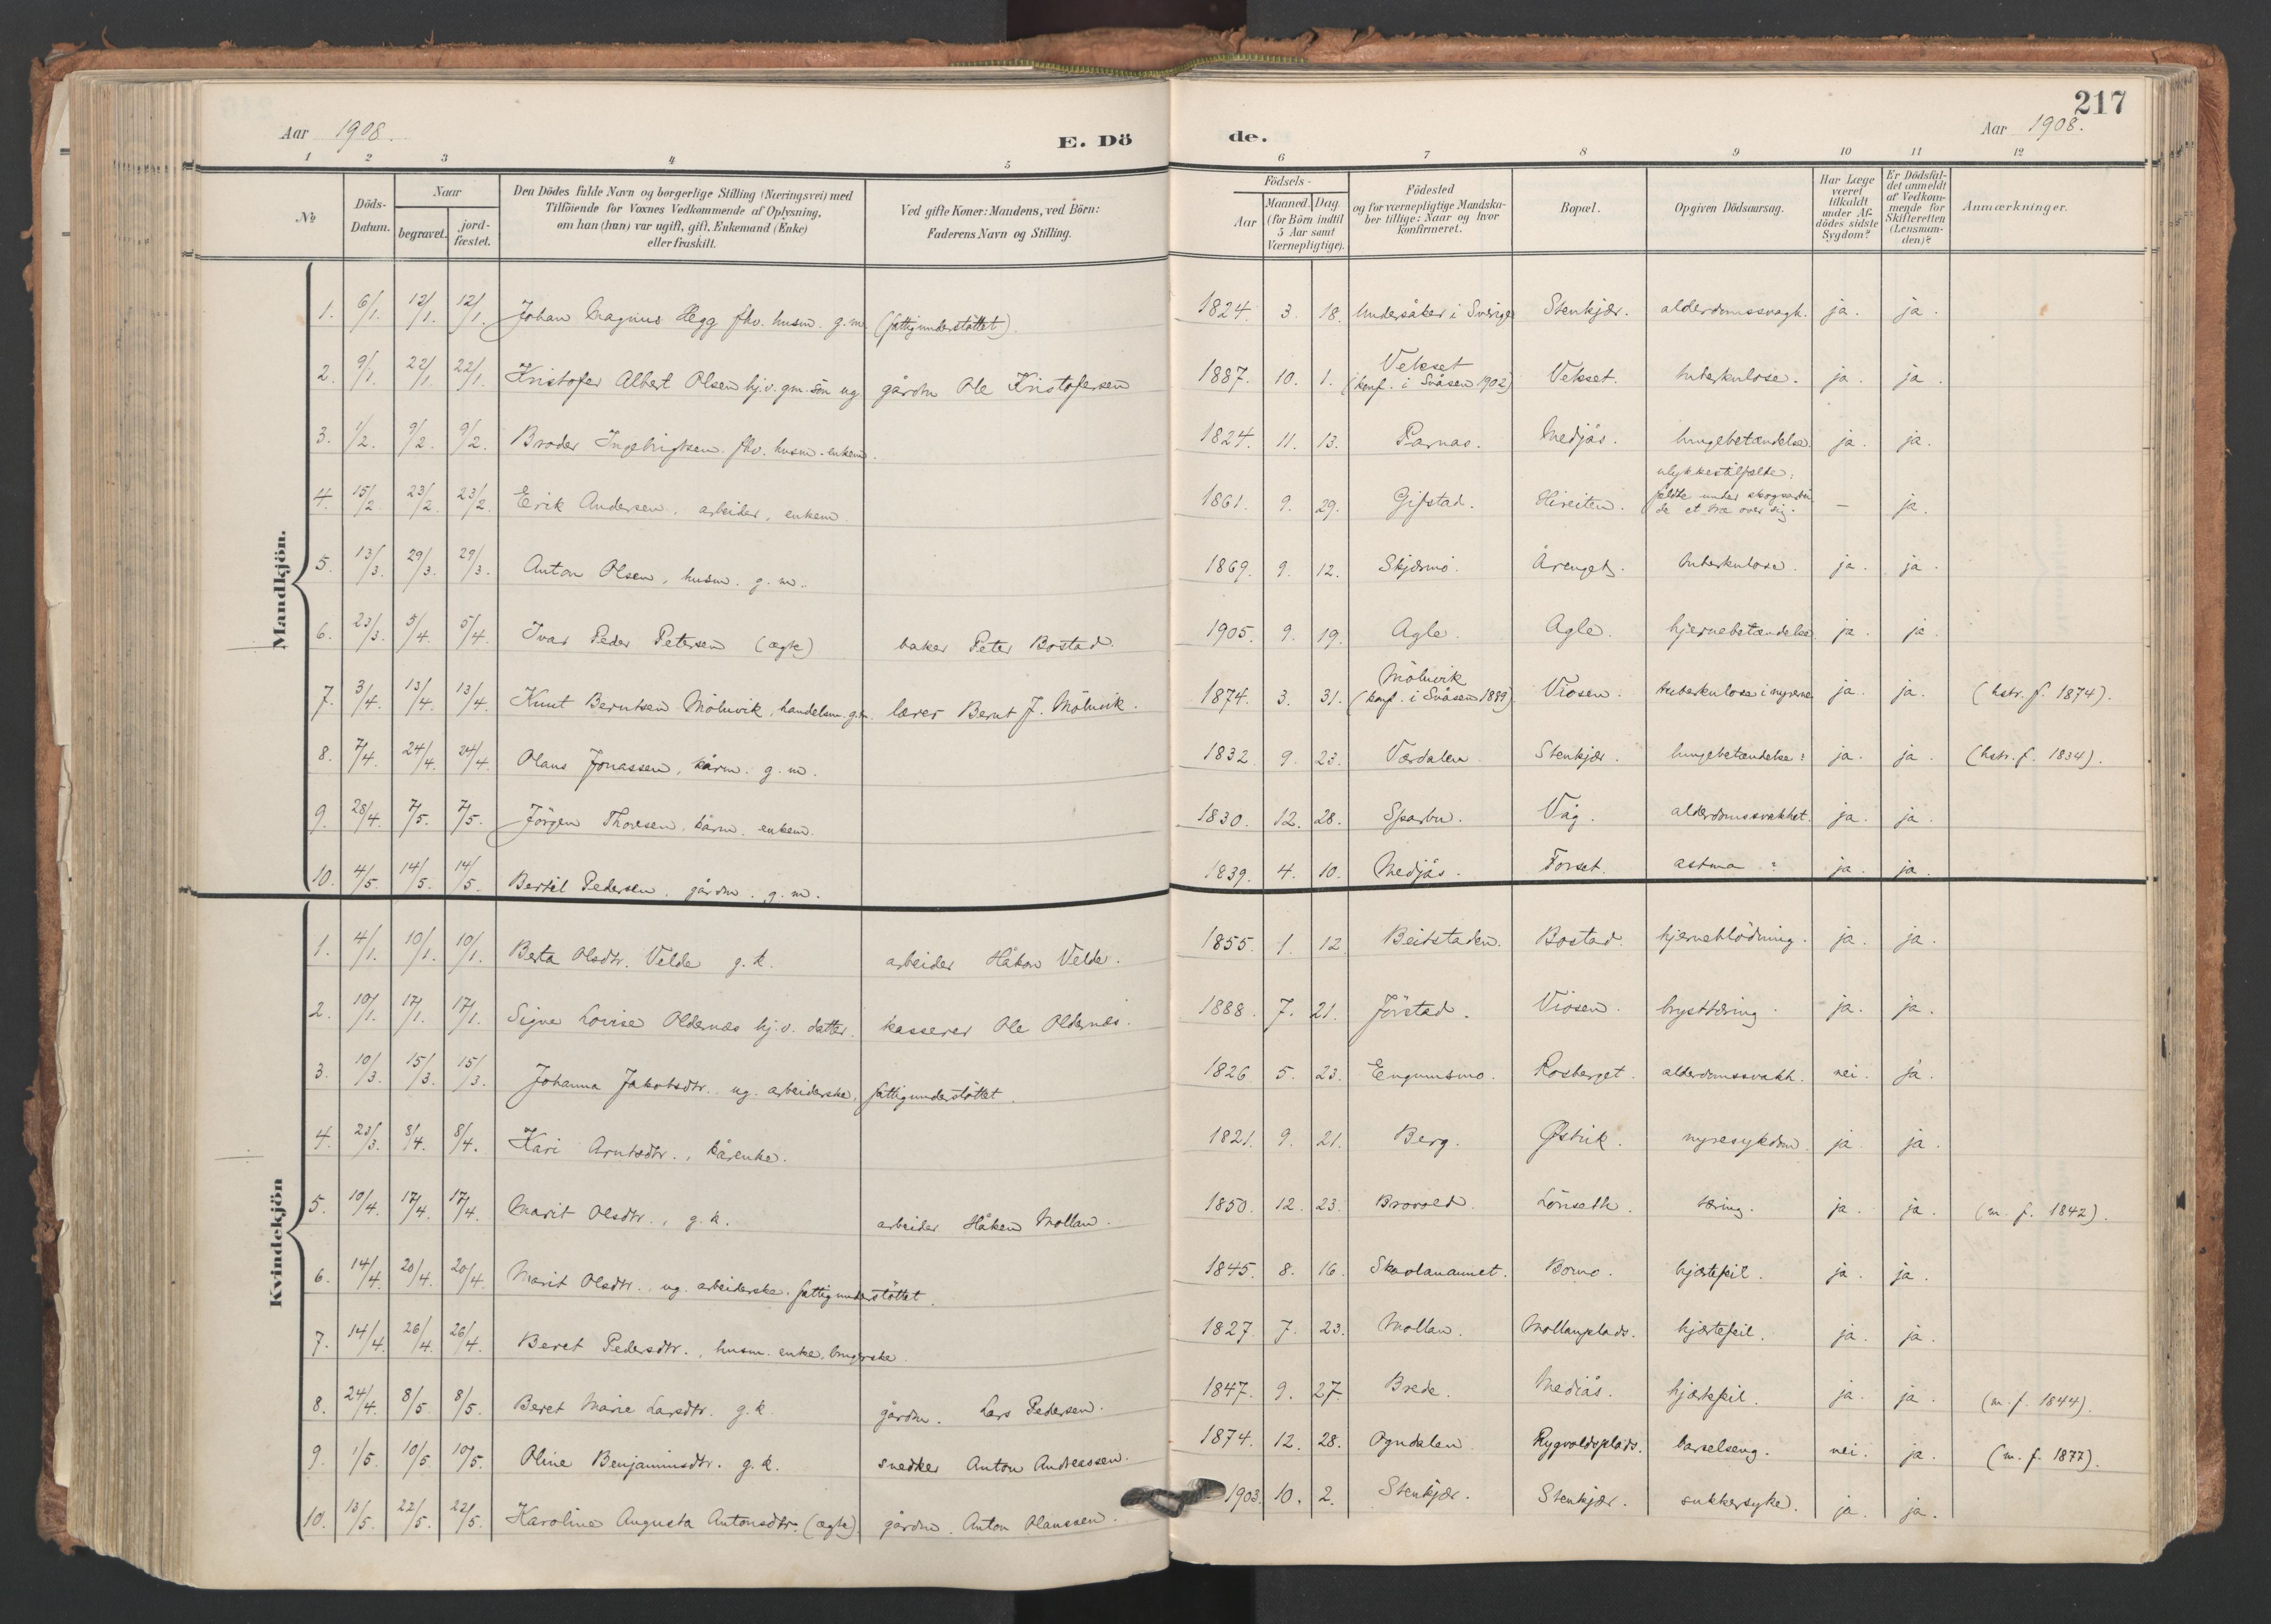 217
Aar 1908.
E. Dö
de.
Aar 1908.
1 2 3 4 5 6 7 8 9 10 11 12
№
Döds-Datum.
Naar
begravet.
jord-fæstet.
Den Dödes fulde Navn og borgerlige Stilling (Næringsvei) med
Tilföiende for Voxnes Vedkommende af Oplysning,
om han (hun) var ugift, gift, Enkemand (Enke)
eller fraskilt.
Ved gifte Koner: Mandens, ved Börn:
Faderens Navn og Stilling.
Födsels-
Aar
Maaned. Dag.
(for Börn indtil
5 Aar samt
Værnepligtige).
Födested
og for værnepligtige Mandska-
ber tillige: Naar og hvor
konfirmeret.
Bopæl.
Opgiven Dödsaarsag.
Har Læge
været
tilkaldt
under Af-
dödes sidste
Sygdom?
Er Dödsfal-
det anmeldt
af Vedkom-
mende for
Skifteretten
(Lensman-
den)?
Anmærkninger.
Mandkjön.
1. 6/1. 12/1. 12/1. Johan Magnus Hegg fhv. husm. g.m. (fattigunderstöttet) 1824. 3. 18. Undersåker i Sverige Stenkjær. alderdomssvagh. ja. ja.
2. 9/1. 22/1. 22/1. Kristofer Albert Olsen hj.v. gm. sön ug. gårdm Ole Kristofersen 1887. 10. 1. Vekset (konf. i Snåsen 1902) Vekset. tuberkulose. ja. ja.
3. 1/2. 9/2. 9/2. Broder Ingebrigtsen fhv. husm. enkem. 1824. 11. 13. Parnas. Medjås. lungebetændelse. ja. ja.
4. 15/2. 23/2. 23/2. Erik Andersen, arbeider, enkem. 1861. 9. 29. Gifstad. ulykkestilfælde: fældte under skogsarbei de et træ over sig. – ja.
5. 13/3. 29/3. 29/3. Anton Olsen, husm. g.m. 1869. 9. 12. Skjærmo. tuberkulose. ja. ja.
6. 23/3. 5/4. 5/4. Ivar Peder Petersen (ægte) baker Peter Bostad. 1905. 9. 19. Agle. Agle. hjernebetændelse ja. ja.
7. 3/4. 13/4. 13/4. Knut Berntsen Mölnvik, handelsm. g.m. lærer Bernt J. Mölnvik. 1874. 3. 31. Mölnvik (konf. i Snåsen 1889). Viosen. tuberkulose i nyrene ja. ja. (hstr. f. 1874).
8. 7/4. 24/4. 24/4. Olaus Jonassen, kårm. g.m. 1832. 9. 23. Værdalen Stenkjær. lungebetændelse: ja. ja. (hstr. f. 1834).
9. 28/4. 7/5. 7/5. Jörgen Thoresen, kårm. enkem. 1830. 12. 28. Sparbu. Våg. alderdomssvakhet. ja. ja.
10. 4/5. 14/5. 14/5. Bertil Pedersen. gårdm. g.m. 1839. 4. 10. Medjås. Forset. astma : ja. ja.
Kvindekjön
1. 4/1. 10/1. 10/1. Berta Olsdtr. Velde g.k. arbeider Håkon Velde. 1855. 1. 12 Beitstaden. Bostad. hjerneblödning. ja. ja.
2. 10/1. 17/1. 17/1. Signe Lovise Oldernæs hj.v. datter. kasserer Ole Oldernæs. 1888. 7. 21. Jörstad. Viosen. brysttæring. ja. ja.
3. 10/3. 15/3. 15/3. Johanna Jakobsdtr. ug. arbeiderske, fattigunderstöttet. 1826 5. 23. Engumsmo. Rosberget. alderdomssvakh. nei. ja.
4. 23/3. 8/4. 8/4. Kari Arntsdtr., kårenke. 1821. 9. 21. Berg. Østvik. nyresykdom. ja. ja.
5. 10/4. 17/4. 17/4. Marit Olsdtr., g.k. arbeider Håken Mollan. 1850. 12. 23. Brovold. Lönseth. tæring. ja. ja. (m. f. 1842).
6. 14/4. 20/4. 20/4. Marit Olsdtr., ug. arbeiderske. fattigunderstöttet. 1845. 8. 16. Bomo. hjertefeil. ja. ja.
7. 14/4. 26/4. 26/4. Beret Pedersdtr., husm. enke, brugerske 1827. 7. 23. Mollan. Mollanplads. hjertefeil. ja. ja.
8. 24/4. 8/5. 8/5. Beret Marie Larsdtr. g.k. gårdm. Lars Pedersen. 1847. 9. 27. Brede. Medjås. hjertefeil. ja. ja. (m. f. 1844).
9. 1/5. 10/5. 10/5. Oline Benjaminsdtr. g.k. snedker Anton Andreassen. 1874. 12. 28. Ogndalen. Rygvoldsplads. barselseng. nei. ja. (m. f. 1877).
10. 13/5. 22/5. 22/5. Karoline Augusta Antonsdtr. (ægte). gårdm. Anton Olaussen. 1903. 10. 2. Stenkjær. Stenkjær. sukkersyke. ja. ja.